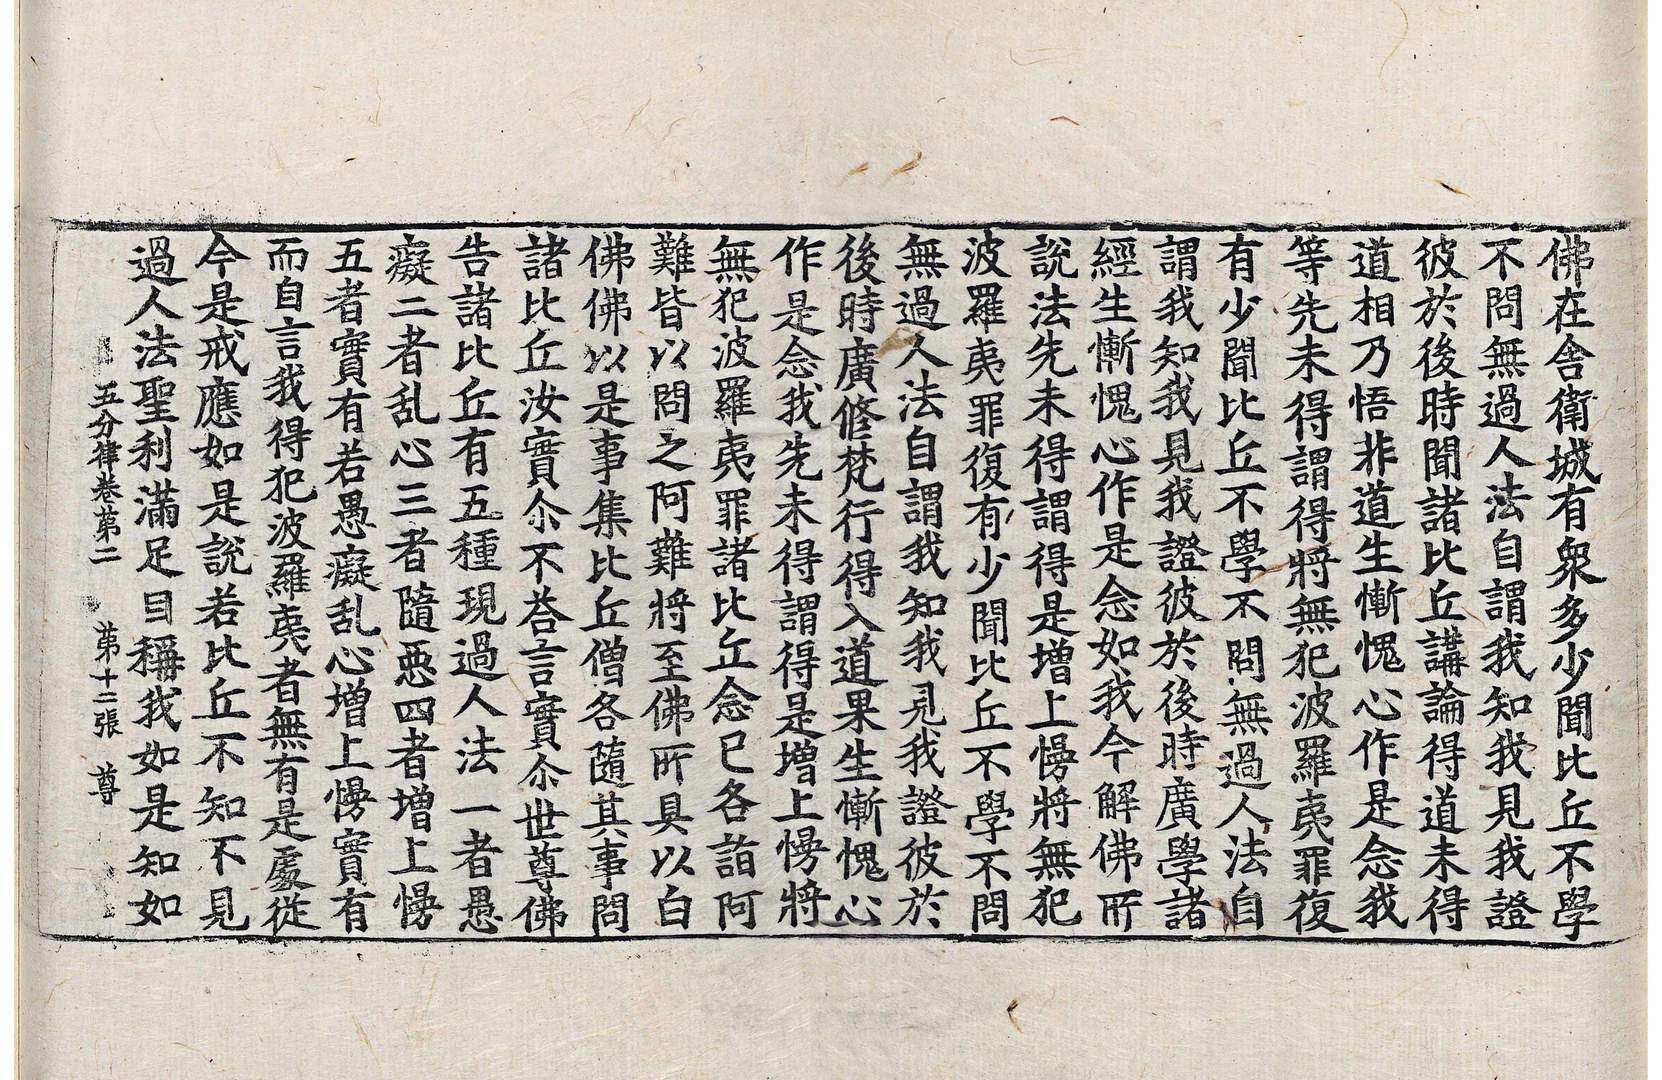 佛在舍衛城有衆多少聞比丘不學
不問無過人法自謂我知我見我證
彼於後時聞諸比丘講論得道未得
道相乃悟非道生慚愧心作是念我
等先未得謂得將無犯波羅夷罪復
有少聞比丘不學不問無過人法自
謂我知我見我證彼於後時廣學諸
經生慚愧心作是念如我今解佛所
說法先未得謂得是增上慢將無犯
波羅夷罪復有少聞比丘不學不問
無過人法自謂我知我見我證彼於
後時廣修梵行得入道果生慚愧心
作是念我先未得謂得是增上慢將
無犯波羅夷罪諸比丘念已各詣阿
難皆以問之阿難將至佛所具以白
佛佛以是事集比丘僧各隨其事問
諸比丘汝實尒不荅言實尒世尊佛
告諸比丘有五種現過人法一者愚
癡二者乱心三者隨惡四者增上慢
五者實有若愚癡乱心增上慢實有
而自言我得犯波羅夷者無有是處從
今是戒應如是說若比丘不知不見
過人法聖利滿足自稱我如是知如
五分律卷第二 第十二張 尊